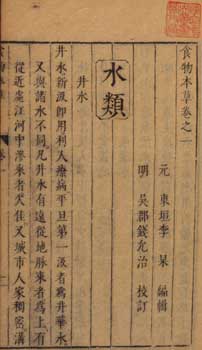 食物本草卷之一
元 東垣李 杲 編輯
明 吳郡錢允治 校訂
水類
井水
井水新汲即用利人療病平旦第一汲者爲井華水
又與諸水不同凡井水有遠從地脉來者爲上有
從近處江河中滲來者欠佳又城市人家稠密溝
食物本草 卷一